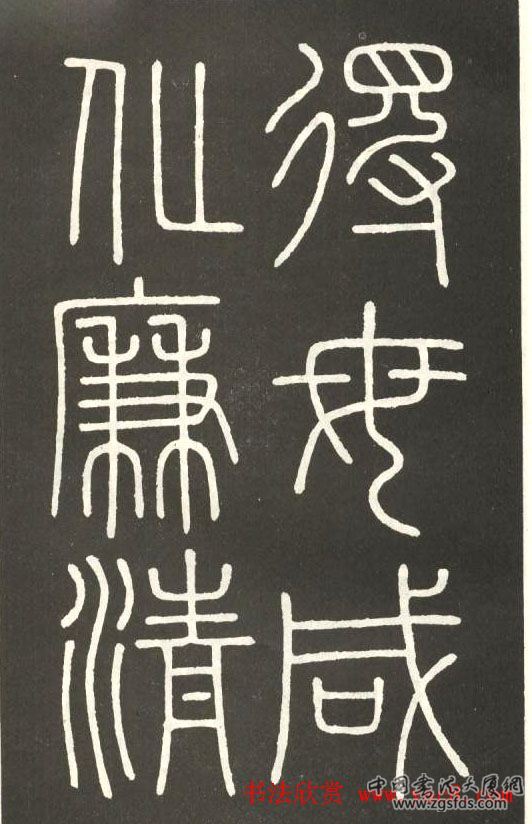 得母咸
化廉清
书法欣赏 www.
中国书法大展网
www.zgsfds.com